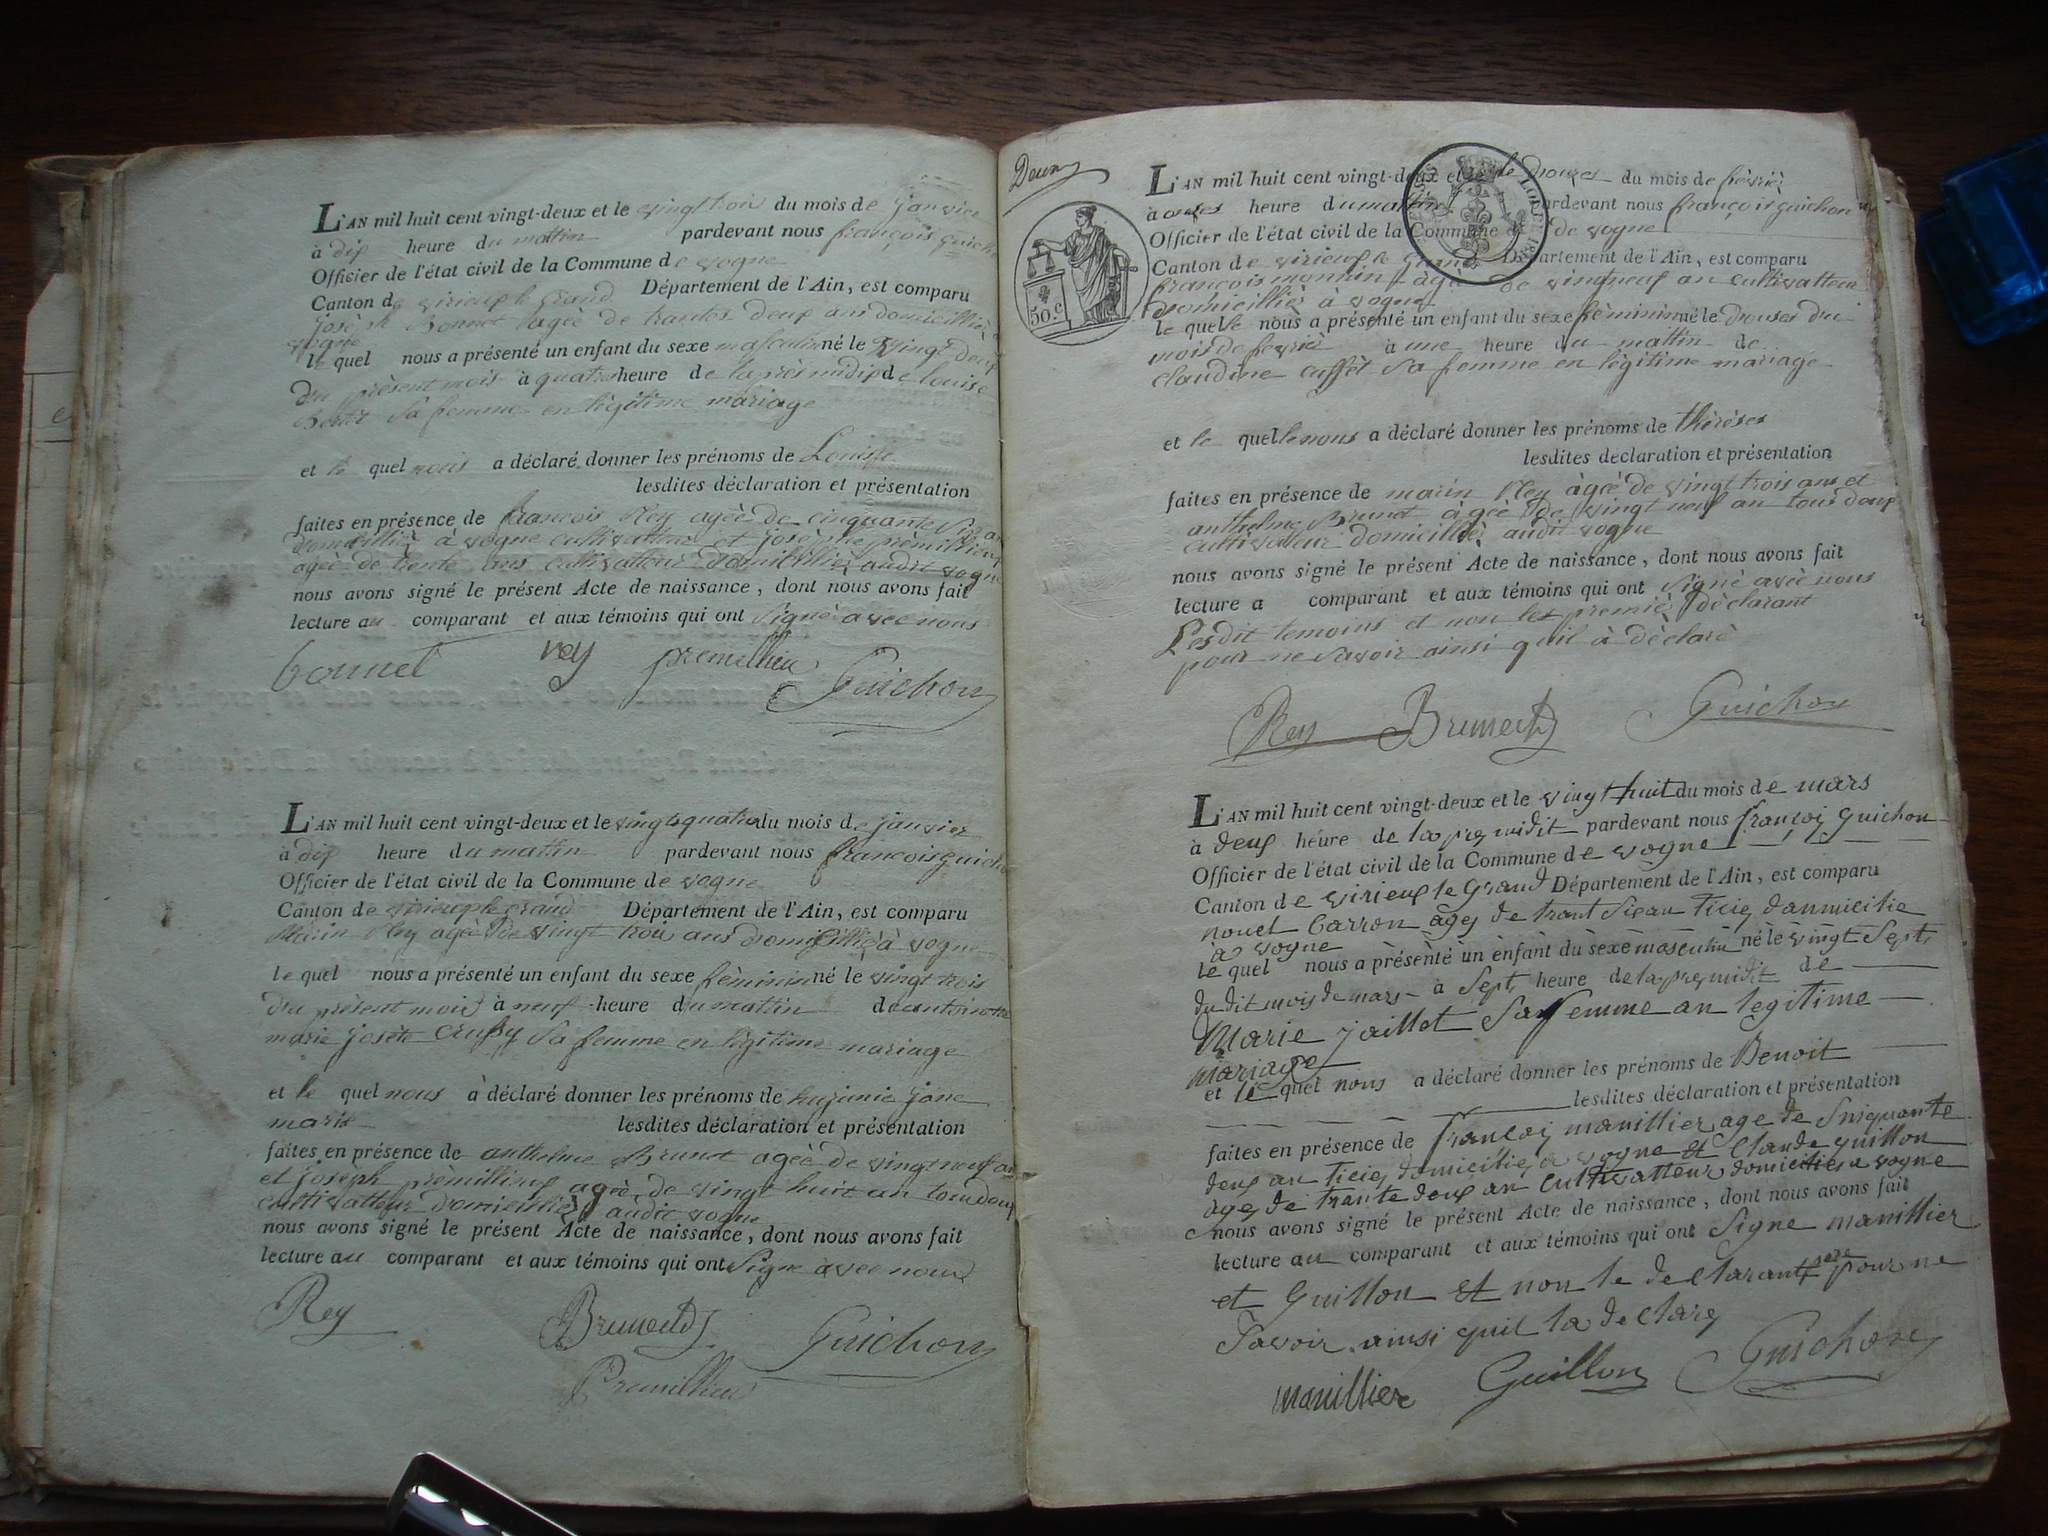 L'AN mil huit cent vingt-deux et le vingt trois du mois de janvier
à dix heure du mattin pardevant nous françois guichon
Officier de l'état civil de la Commune de vogne
Canton de virieux le grand Département de l'Ain, est comparu
josèph Bonnet agéé de trantes deux ans domicilliéz à
vogne
le quel nous a présenté un enfant du sexe masculin né le vingt deux
du présent mois à quatres heure de laprès midix de louise
sa femme en légitime mariage
et le quel nous a déclaré donner les prénoms de Louise
lesdites déclaration et présentation
faites en présence de francois Rey agéé de cinquante six an
domicilliéz à vogne cultivatteur et josèphe prémillieux
agéé de trente ans cultivatteur domicilliéz audit vogne
nous avons signé le présent Acte de naissance, dont nous avons fait
lecture au comparant et aux témoins qui ont signé avec nous
bonnet rey premillieu Guichon
L'AN mil huit cent vingt-deux et le vingt quatre du mois de janvier
à dix heure du mattin pardevant nous francois guichon
Officier de l'état civil de la Commune de vogne
Canton de virieux le grand Département de l'Ain, est comparu
Marin Rey agéé de vingt trois ans domicilliéz à vogne
le quel nous a présenté un enfant du sexe féminin né le vingt trois
du présent mois à neuf heure du mattin de antoinette
marie josète sa femme en légitime mariage
et le quel nous à déclaré donner les prénoms de hujenie jane
marie lesdites déclaration et présentation
faites en présence de anthelme Brunet agéé de vingt neuf an
et josèph prémillieux agéé de vingt huit an tous deux
cultivatteur domicilliéz audit vogne
nous avons signé le présent Acte de naissance, dont nous avons fait
lecture au comparant et aux témoins qui ont signé avec nous
Rey Brunet Guichon
Premillieu
Deux
50.c
L'AN mil huit cent vingt-deux et le douzes du mois de févriér
à onzes heure du mattin pardevant nous françois guichon
Officier de l'état civil de la Commune de vogne
Canton de virieux le grand Département de l'Ain, est comparu
françois agéé de vingt neuf an cultivatteur
domicilliéz à vogne
le quelle nous a présenté un enfant du sexe féminin né le douzes du
mois de fevriér à une heure du mattin de
claudine cuffet sa femme en légitime mariage
et le quelle nous a déclaré donner les prénoms de thérèses
lesdites déclaration et présentation
faites en présence de marin Rey àgéé de vingt trois ans et
anthelme Brunet àgéé de vingt neuf an tous deux
cultivatteur domicilliéz audit vogne
nous avons signé le présent Acte de naissance, dont nous avons fait
lecture a comparant et aux témoins qui ont signé avéc nous
Lesdit temoins et non let premiér déclarant
pour ne savoir ainsi quil à déclaré
Rey Brunet Guichon
L'AN mil huit cent vingt-deux et le vingt huit du mois de mars
à deux heure de la pre midit pardevant nous françoi guichon
Officier de l'état civil de la Commune de vogne
Canton de virieux le grand Département de l'Ain, est comparu
nouel Carron age de trant six an ticie domicilie
à vogne
le quel nous a présenté un enfant du sexe masculin né le vingt sept
du dit mois de mars à sept heure de la pre midit de
Marie jaillet sa femme an legitime
mariage
et le quel nous a déclaré donner les prénoms de Benoit
lesdites déclaration et présentation
faites en présence de françoi manillier age de sinquante
deux an ticie domicilie a vogne et Claude guillon
age de trante deux an cultivatteur domicilie a vogne
nous avons signé le présent Acte de naissance, dont nous avons fait
lecture au comparant et aux témoins qui ont signe manillier
et Guillon et non le declarant pour ne
savoir ainsi quil la declare
manillier Guillon Guichon